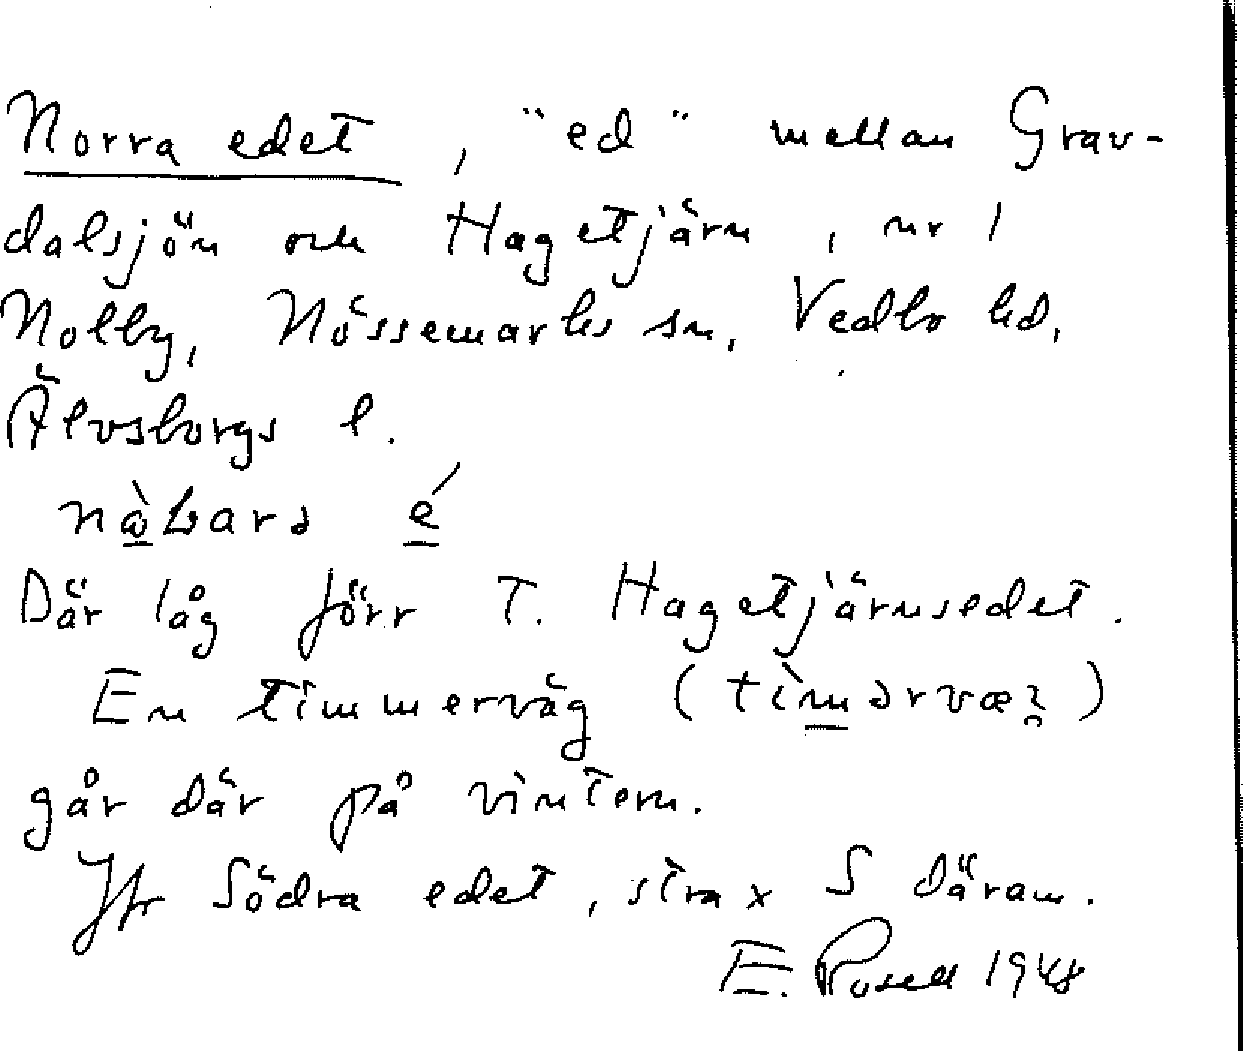 Norra edet, "ed" mellan Grav-
dalsjön och Hagetjärn, nr 1
Nolby, Nössemarks sn, Vedbo hd,
Älvsborgs l.
Där låg förr T. Hagetjärnsedet.
En timmerväg (
går där på vintern.
Jfr Södra edet, strax S därom.
E. Rosell 1948